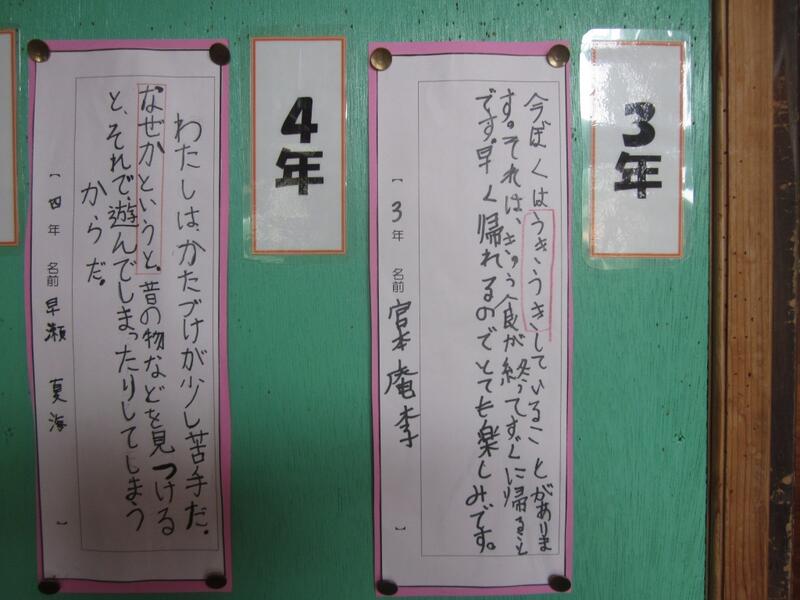 3年
今ぼくはうきうきしていることがありま
す。それは、きゅう食が終ってすぐに帰ること
です。早く帰れるのでとても楽しみです。
【3年 名前 宮本庵李】
4年
わたしは、かたづけが少し苦手だ。
なぜかというと、昔の物などを見つける
と、それで、遊んでしまったりしてしまう
からだ。
【四年 名前 早瀬 夏海】